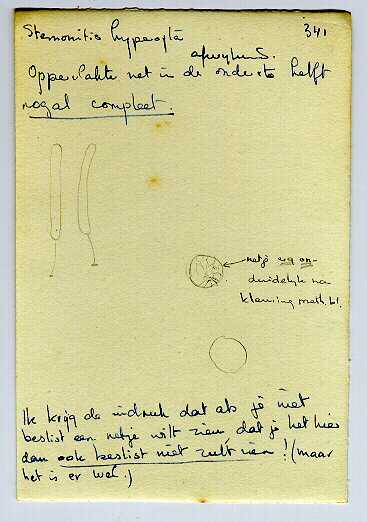 341
Stemonitis hyperopta
Oppervlakte net in de onderste helft
nogal compleet.
netje erg on-
duidelijk na
kleuring meth. bl.
Ik krijg de indruk dat als je niet
beslist een netje wilt zien dat je het hier
dan ook beslist niet zult zien! (maar
het is er wel.)